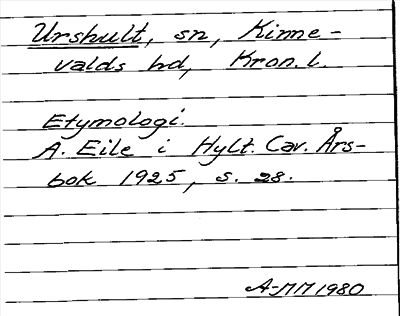 Urshult, sn, Kinne-
valds hd, Kron. l.
Etymologi.
A. Eile i Hylt. Cav. Års-
bok 1925, s. 28.
A-MM 1980